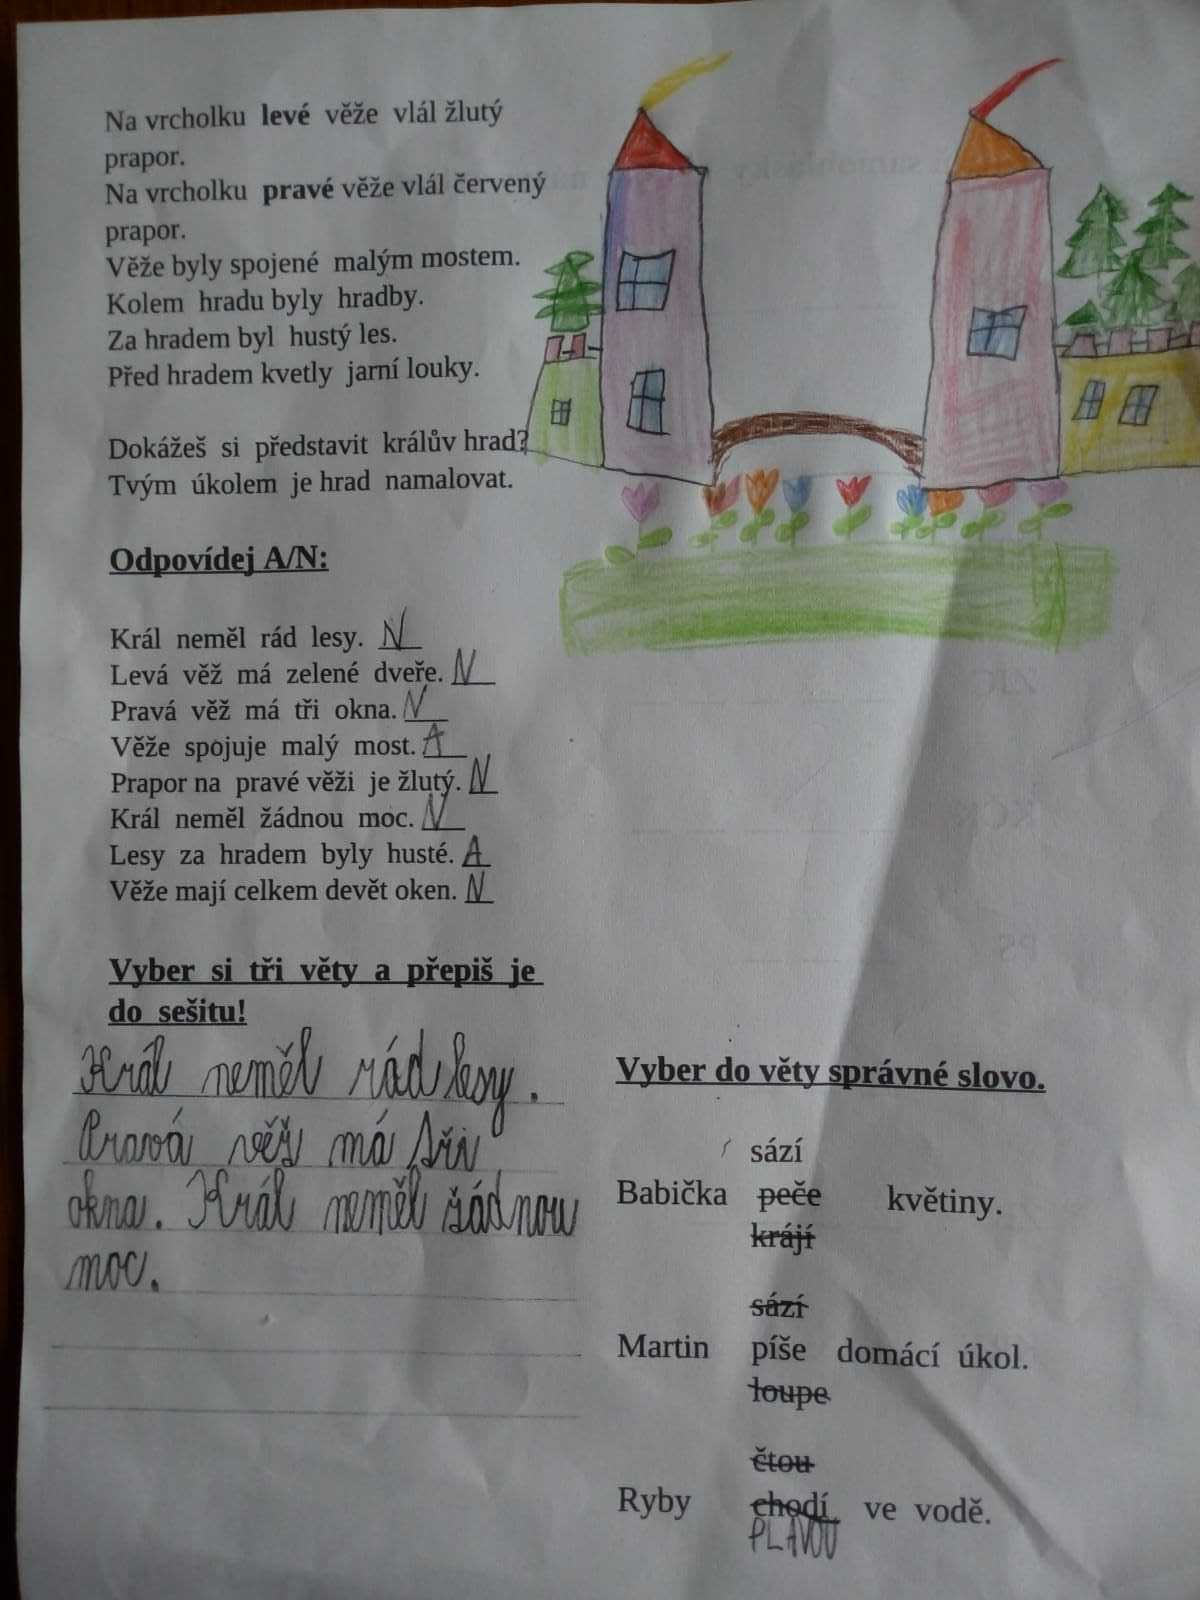 Na vrcholku levé věže vlál žlutý
prapor.
Na vrcholku pravé věže vlál červený
prapor.
Věže byly spojené malým mostem.
Kolem hradu byly hradby.
Za hradem byl hustý les.
Před hradem kvetly jarní louky.
Dokážeš si představit králův hrad?
Tvým úkolem je hrad namalovat.
Odpovídej A/N:
Král neměl rád lesy. N
Levá věž má zelené dveře. N
Pravá věž má tři okna. N
Věže spojuje malý most. A
Prapor na pravé věži je žlutý. N
Král neměl žádnou moc. N
Lesy za hradem byly husté. A
Věže mají celkem devět oken. N
Vyber si tři věty a přepiš je
do sešitu!
Král neměl rád lesy.
Pravá věž má tři
okna. Král neměl žádnou
moc.
Vyber do věty správné slovo.
sází
Babička peče květiny.
krájí
sází
Martin píše domácí úkol.
loupe
čtou
Ryby chodí ve vodě.
PLAVOU